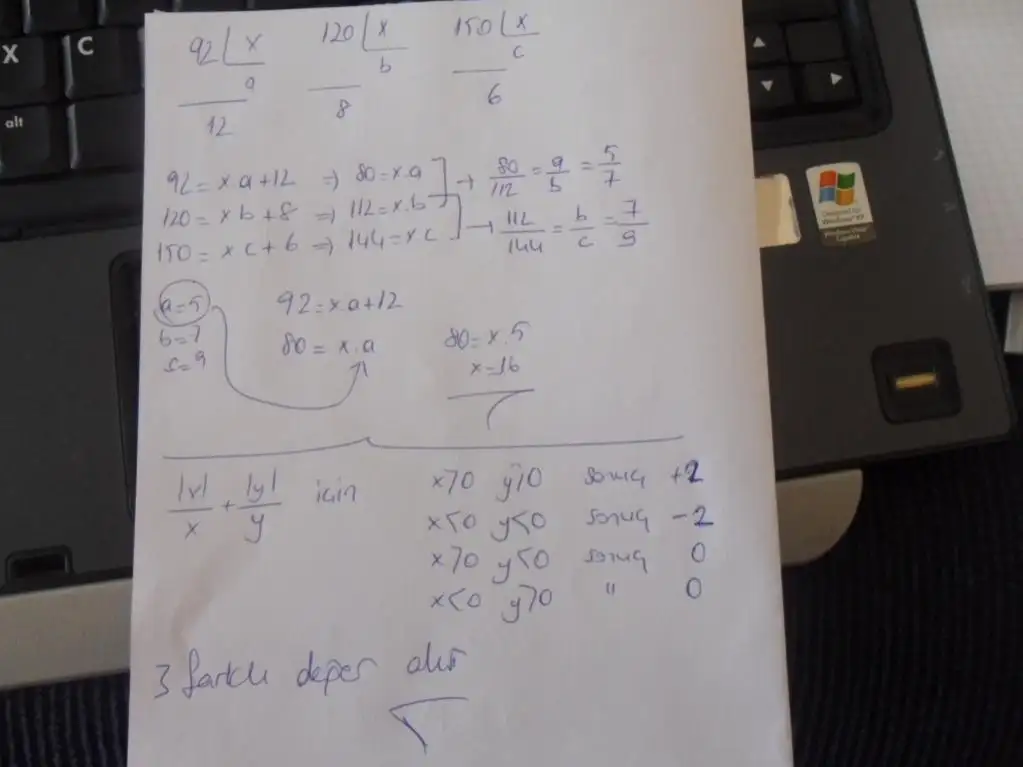 X
C
alt
92 | x
a
12
120 | x
b
8
150 | x
c
6
92 = x.a+12 => 80 = x.a → 80/112 = a/b = 5/7
120 = xb+8 => 112 = x.b
150 = xc+6 => 144 = xc → 112/144 = b/c = 7/9
a=5
b=7
c=9
92 = x.a+12
80 = x.a
80 = x.5
x=16
|x|/x + |y|/y için
x>0 y>0 sonuç +2
x<0 y<0 sonuç -2
x>0 y<0 sonuç 0
x<0 y>0 " 0
3 farklı değer alır
Designed for
Windows XP
Windows Vista
Capable